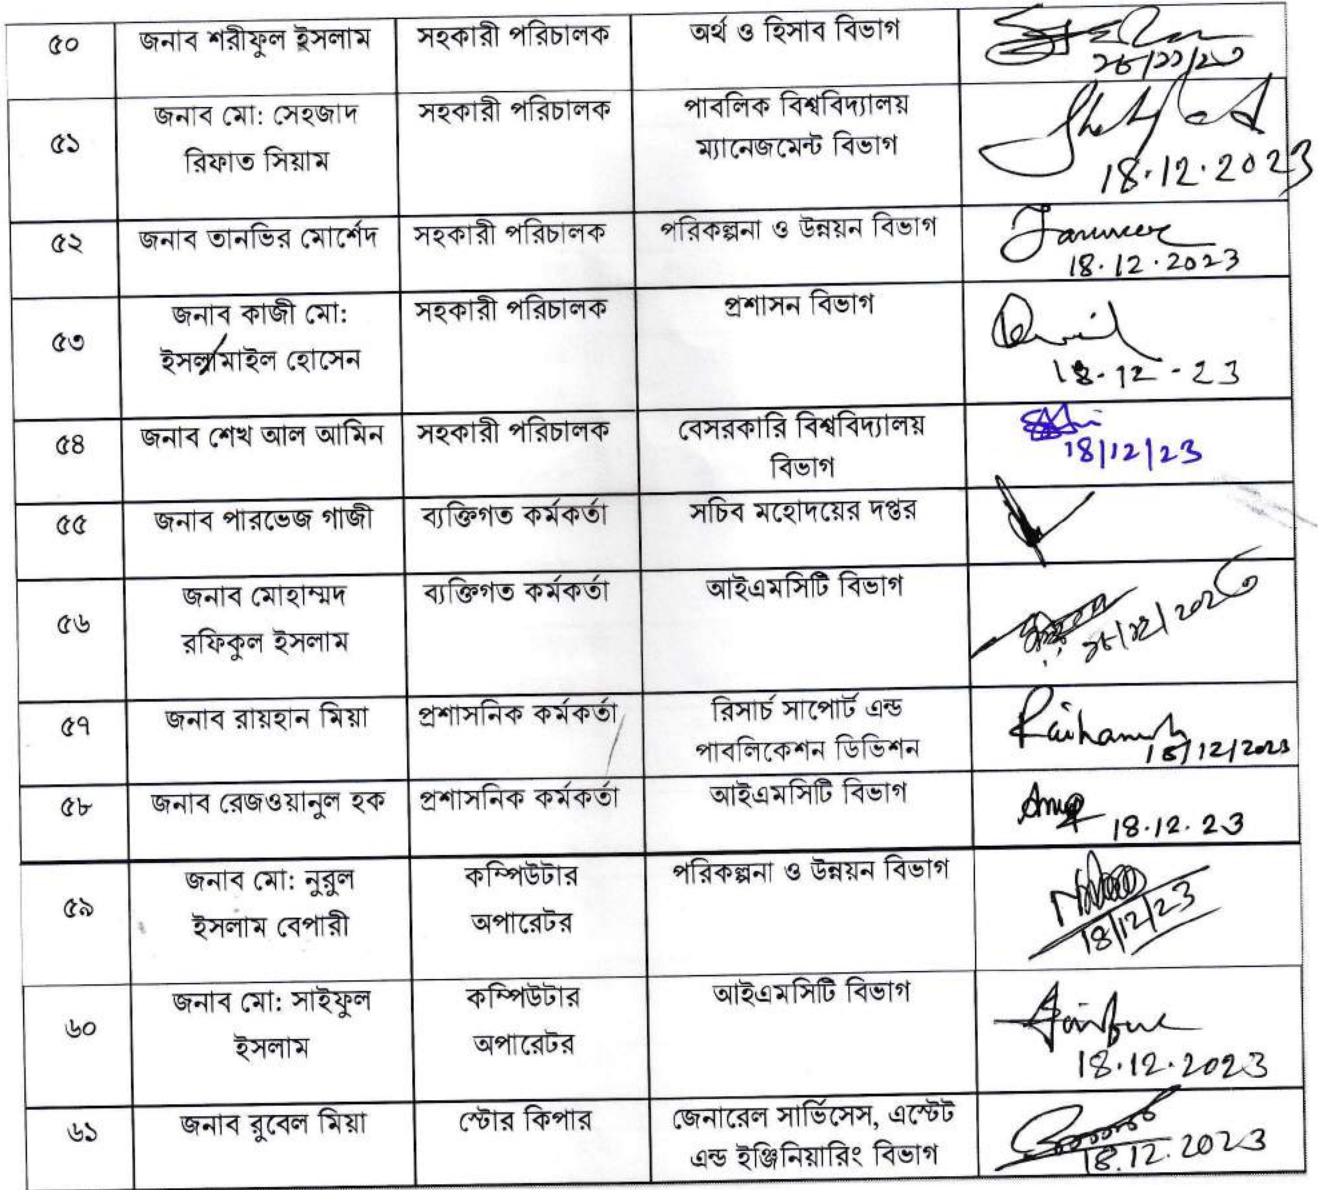 ৫০ জনাব শরীফুল ইসলাম সহকারী পরিচালক অর্থ ও হিসাব বিভাগ
১৮/১২/২৩
৫১ জনাব মো: সেহজাদ সহকারী পরিচালক পাবলিক বিশ্ববিদ্যালয়
রিফাত সিয়াম ম্যানেজমেন্ট বিভাগ
18.12.2023
৫২ জনাব তানভির মোর্শেদ সহকারী পরিচালক পরিকল্পনা ও উন্নয়ন বিভাগ
18.12.2023
৫৩ জনাব কাজী মো: সহকারী পরিচালক প্রশাসন বিভাগ
ইসলামাইল হোসেন
18-12-23
৫৪ জনাব শেখ আল আমিন সহকারী পরিচালক বেসরকারি বিশ্ববিদ্যালয়
বিভাগ
18/12/23
৫৫ জনাব পারভেজ গাজী ব্যক্তিগত কর্মকর্তা সচিব মহোদয়ের দপ্তর
৫৬ জনাব মোহাম্মদ ব্যক্তিগত কর্মকর্তা আইএমসিটি বিভাগ
রফিকুল ইসলাম
১৮/১২/২০২৩
৫৭ জনাব রায়হান মিয়া প্রশাসনিক কর্মকর্তা রিসার্চ সাপোর্ট এন্ড
পাবলিকেশন ডিভিশন
Raihan 18/12/2023
৫৮ জনাব রেজওয়ানুল হক প্রশাসনিক কর্মকর্তা আইএমসিটি বিভাগ
18.12.23
৫৯ জনাব মো: নুরুল কম্পিউটার পরিকল্পনা ও উন্নয়ন বিভাগ
ইসলাম বেপারী অপারেটর
18/12/23
৬০ জনাব মো: সাইফুল কম্পিউটার আইএমসিটি বিভাগ
ইসলাম অপারেটর
18.12.2023
৬১ জনাব রুবেল মিয়া স্টোর কিপার জেনারেল সার্ভিসেস, এস্টেট
এন্ড ইঞ্জিনিয়ারিং বিভাগ
18.12.2023